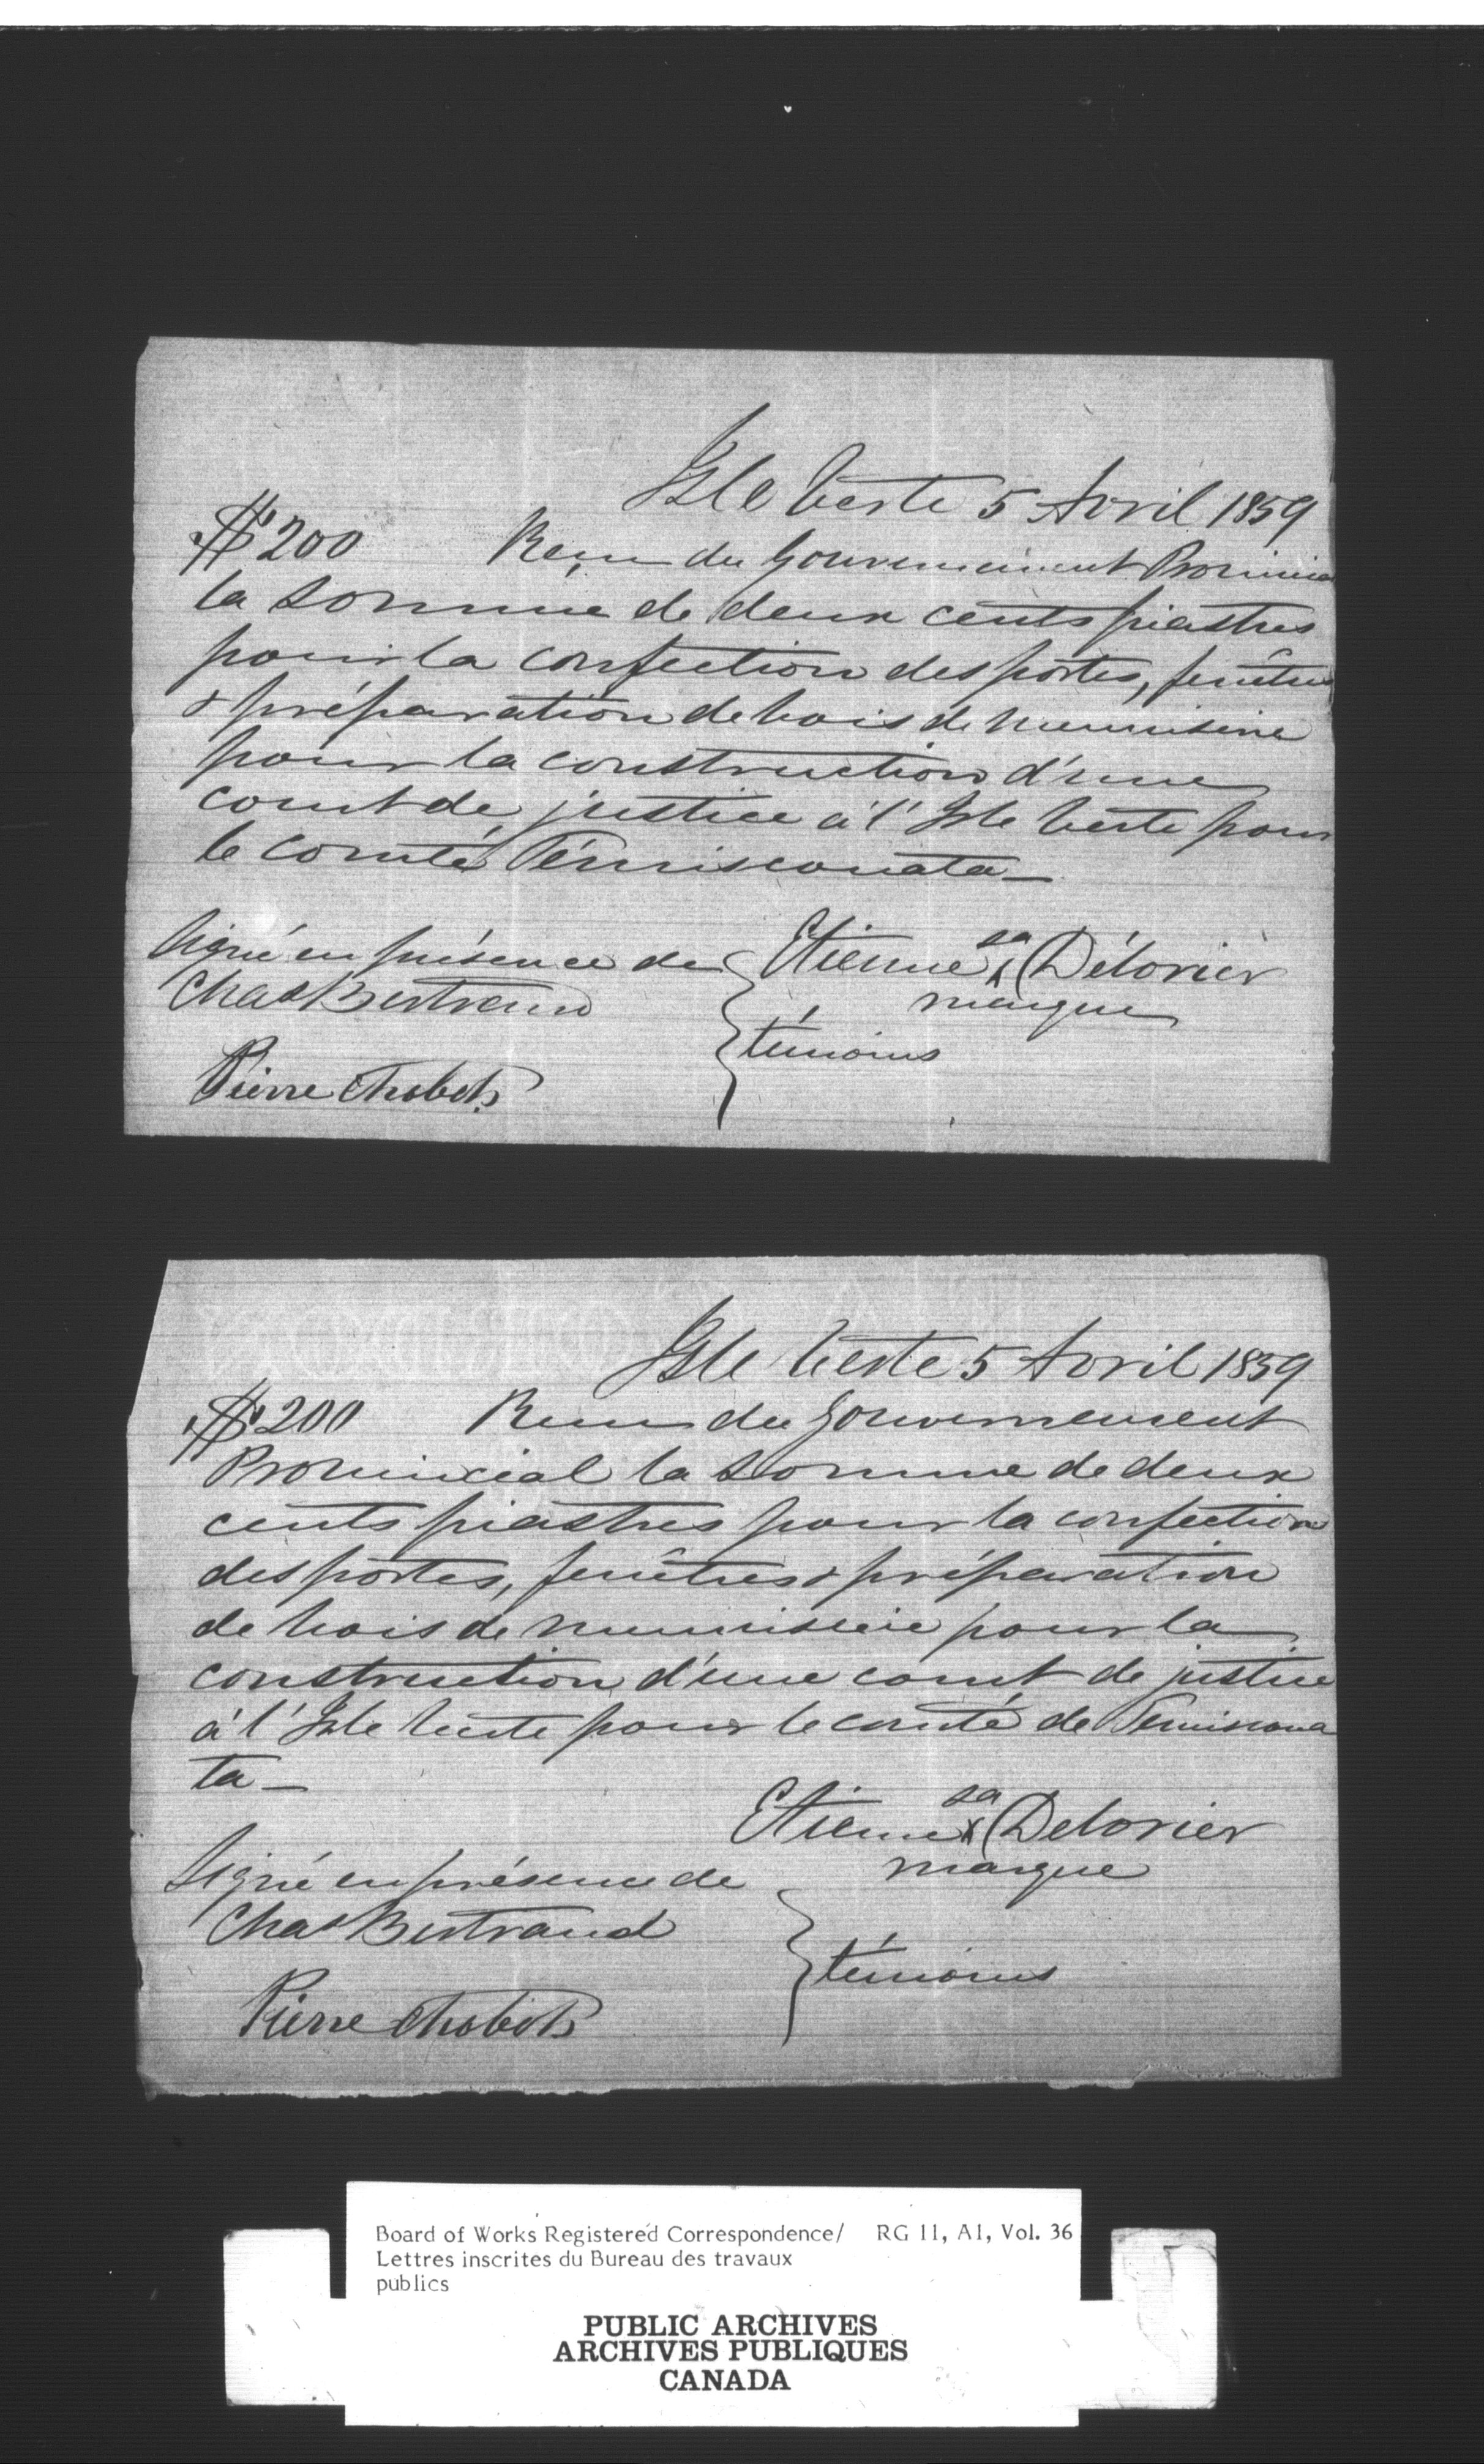 Isle Verte 5 Avril 1859
$200 Reçu du Gouvernement Provincial
la somme de deux cents piastres
pour la confection des portes, fenêtres
& préparation de bois de menuiserie
pour la construction d'une
court de justice à l'Isle Verte pour
le comté Témiscouata_
Signé en présence de Etienne sa x Délorier
Chas Bertrand marque
témoins
Pierre Chabot
Isle Verte 5 Avril 1859
$200 Recu du Gouvernement
Provincial la somme de deux
cents piastres pour la confection
des portes, fenêtres & préparation
de bois de menuiserie pour la
construction d'une court de justice
à l'Isle Verte pour le comté de Temiscoua
ta_
Etienne sa x Delorier
marque
Signé en présence de
Chas Bertrand
témoins
Pierre Chabot
Board of Works Registered Correspondence/ RG 11, A1, Vol. 36
Lettres inscrites du Bureau des travaux
publics
PUBLIC ARCHIVES
ARCHIVES PUBLIQUES
CANADA